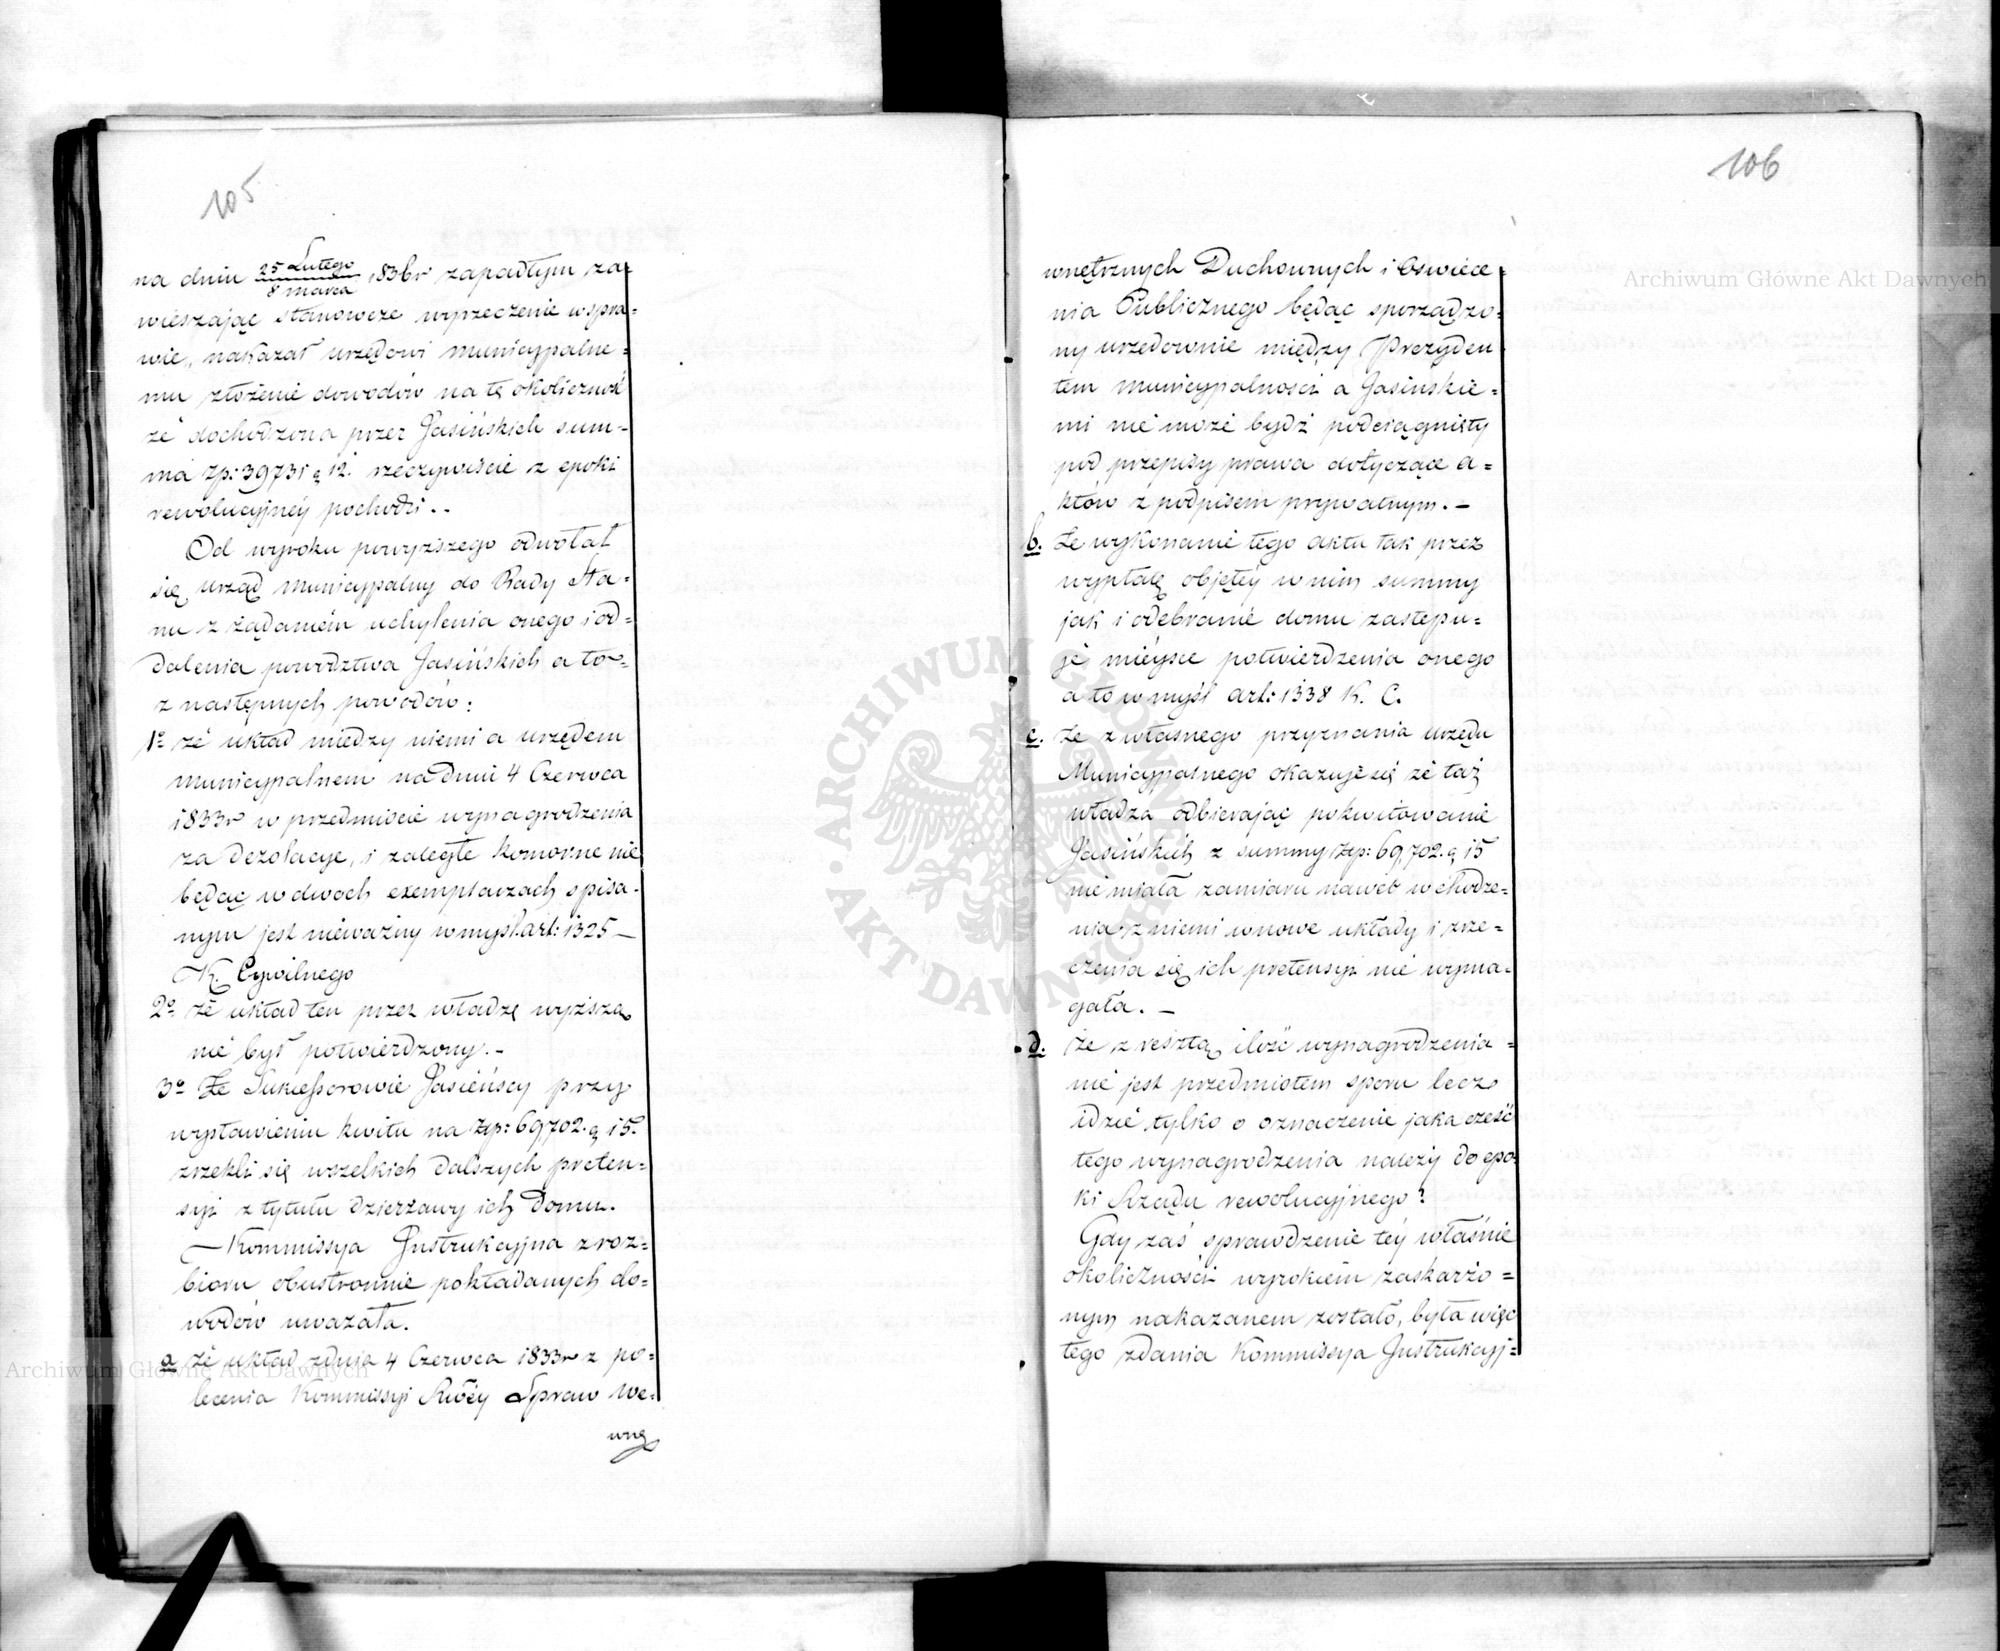 105
na dniu 25 Lutego / 8 marca 1836r zapadłym za-
wieszając stanowcze wyrzeczenie w spra-
wie, nakazał urzędowi municypalne-
mu złożenie dowodów na tę okoliczność
że dochodzona przez Jasińskich sum-
ma zp: 39731 g 12. rzeczywiście z epoki
rewolucyjnéy pochodzi. -
Od wyroku powyższego odwołał
się urząd Municypalny do Rady Sta-
nu z żądaniem uchylenia onego i od-
dalenia powództwa Jasińskich a to-
z następnych powodów:
1o że układ między niemi a urzędem
municypalnem na dniu 4 Czerwca
1833r w przedmiocie wynagrodzenia
za dezolacye, i zaległe komorne nie
będąc w dwoch exemplarzach spisa-
nym jest nieważny w myśl art: 1325 —
K. Cywilnego
2o że układ ten przez władzę wyższą
nie był potwierdzony. -
3o Że Sukcessorowie Jasińscy przy
wystawieniu kwitu na zp: 69,702. g 15.
zrzekli się wszelkich dalszych preten-
syi z tytułu dzierżawy ich Domu.
— Kommissya Instrukcyjna z roz-
bioru obustronnie pokładanych do-
wodów uważała.
a że układ z dnia 4 Czerwca 1833r z po-
lecenia Kommissyi Rwéy Spraw We-
wnę
106
wnętrznych Duchownych i Oświece-
nia Publicznego będąc sporządzo-
ny urzedownie między Prezyden
tem Municypalności a Jasinskie-
mi nie może bydź podciągnięty
pod przepisy prawa dotyczące a-
któw z podpisem prywatnym. —
b. Że wykonanie tego aktu tak przez
wypłatę objętéy w nim summy
jak i odebranie domu zastępu-
je mieysce potwierdzenia onego
a to w myśl art: 1338 K. C.
c. Że z własnego przyznania urzędu
Municypalnego okazuje się że taż
władza odbierając pokwitowanie
Jasińskich z summy zp: 69,702. g 15
nie miała zamiaru nawet wchodze-
nia z niemi w nowe układy i zrze-
czenia się ich pretensyi nie wyma-
gała. —
d. Że z resztą ilość wynagrodzenia -
nie jest przedmiotem sporu lecz
idzie tylko o oznaczenie jaka cześć
tego wynagrodzenia należy do epo-
ki Rządu rewolucyjnego?
Gdy zaś sprawdzenie téy właśnie
okoliczności wyrokiem zaskarżo-
nym nakazanem zostało, była więc
tego zdania Kommissya Instrukcyj-
Archiwum Główne Akt Dawnych
Archiwum Główne Akt Dawnych
ARCHIWUM GŁÓWNE · AKT DAWNYCH ·